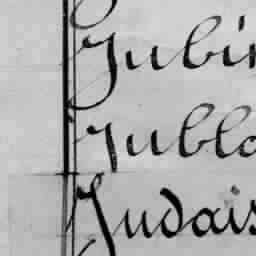 Jubin
Jubla
Judais